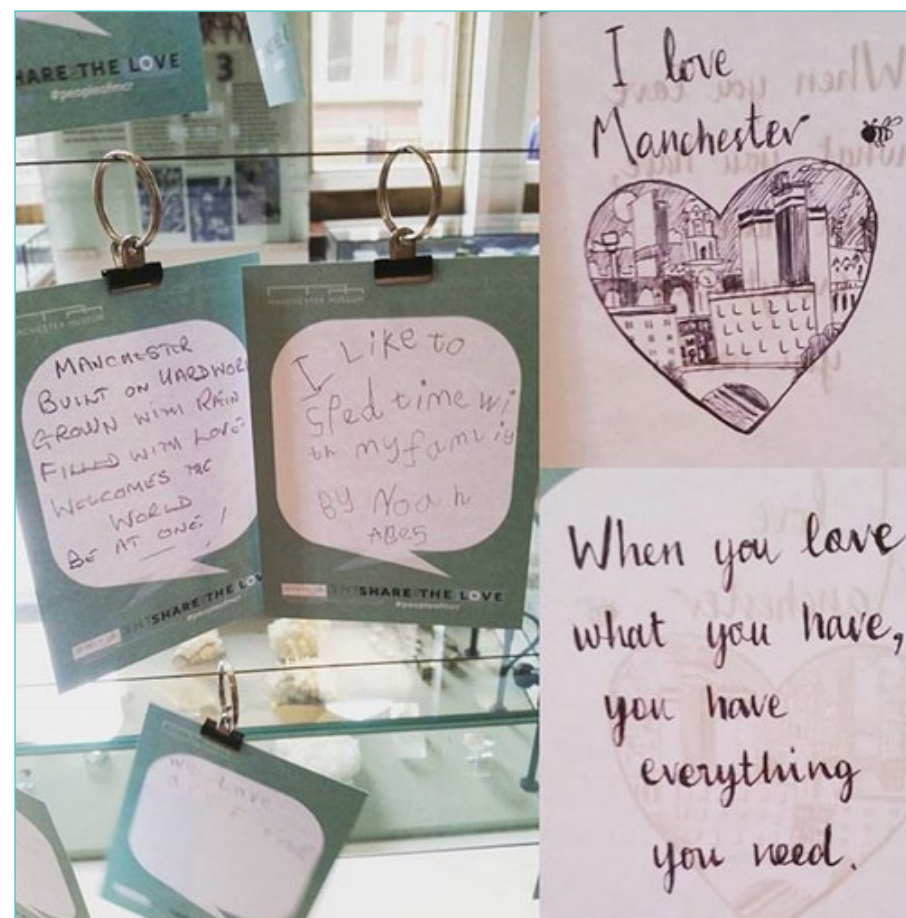 HARE THE LOVE
#peopleofmcr
3
MANCHESTER MUSEUM
MANCHESTER
BUILT ON HARDWORK
GROWN WITH RAIN
FILLED WITH LOVE
WELCOMES THE
WORLD
BE AT ONE!
SHARE THE LOV
I LIKE to
Sped time wi
th my family
BY Noah
AGE5
SHARE THE LOVE
#peopleofmcr
We Love
I love
Manchester
When you love
what you have,
you have
everything
you need.